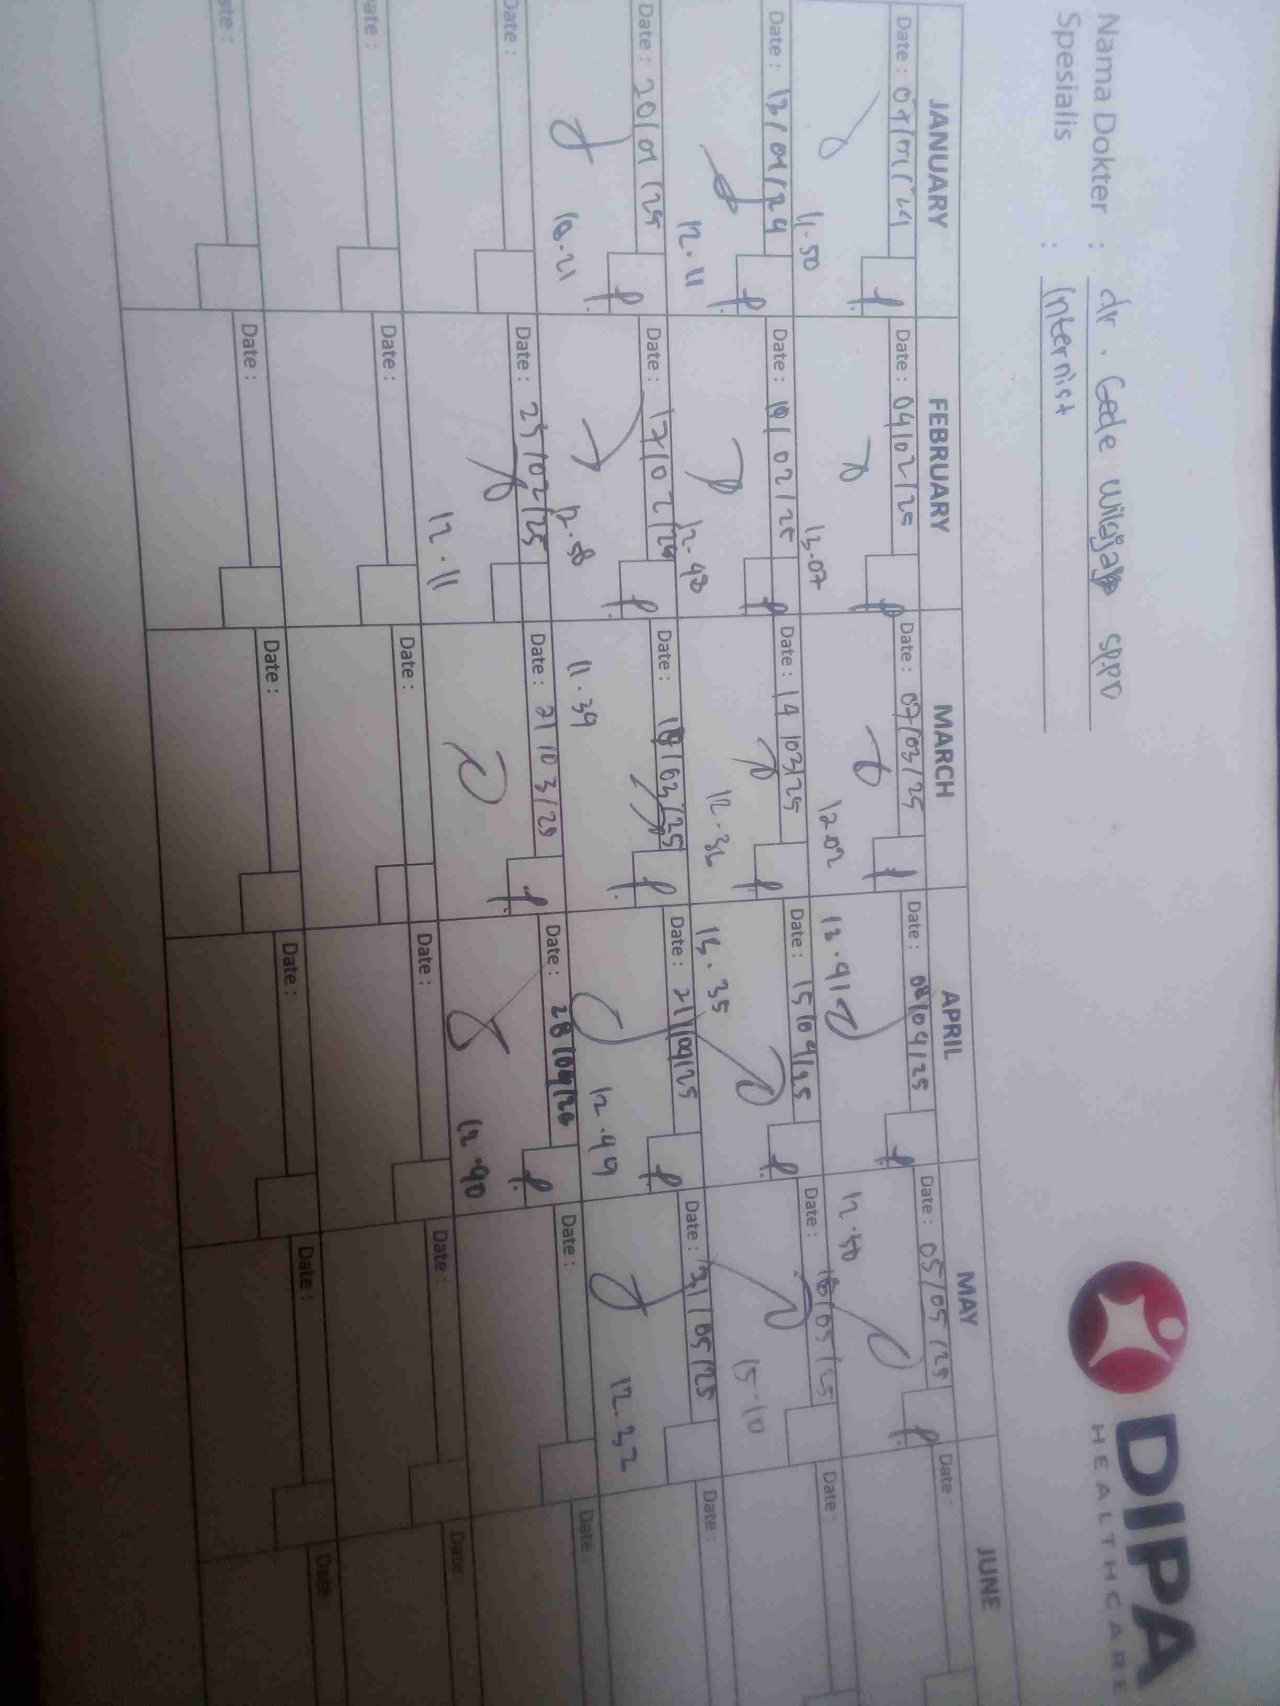 DIPA
HEALTHCARE
Nama Dokter : dr. Gede
Sp.PD
Spesialis : Internist
JANUARY FEBRUARY MARCH APRIL MAY JUNE
Date : Date : 04/02/25 Date : 07/03/25 Date : 08/04/25 Date : 05/05/25 Date :
11.50 13.07 12.02 12.41 12.50
Date : 13/01/24 Date : 10/02/25 Date : 14/03/25 Date : 15/04/25 Date : Date :
12.11 12.48 12.36 13.35 15.10
Date : 20/01/25 Date : 17/02/25 Date : 18/03/25 Date : 21/04/25 Date : 21/05/25 Date :
12.58 11.39 12.49 12.32
Date : Date : 25/02/25 Date : 21/03/25 Date : 28/04/25 Date : Date :
12.11 12.40
Date : Date : Date : Date : Date : Date :
Date : Date : Date : Date : Date : Date